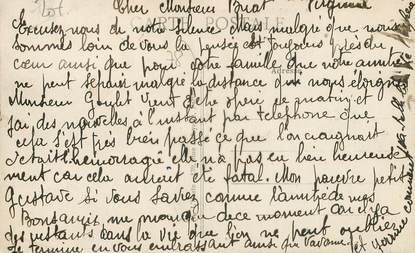 Cher Monsieur Briat
CARTE POSTALE
Excusez nous de notre silence mais malgré que nous
sommes loin de vous la pensée est toujours près du
cœur ainsi que pour votre famille que notre amitié
ne peut malgré la distance qui nous éloigne
Monsieur vient d'être opéré ce matin et
j'ai des nouvelles à l'instant par téléphone que
cela s'est très bien passé ce que l'on craignait
c'était hémorragie elle n'a pas eu lieu heureuse
ment car cela aurait été fatal. Mon pauvre petit
Gustave si vous savez comme l'amitié de mes
me en ce moment car il y a
des instants dans la vie que l'on ne peut oublier
Je termine en vous embrassant ainsi que et